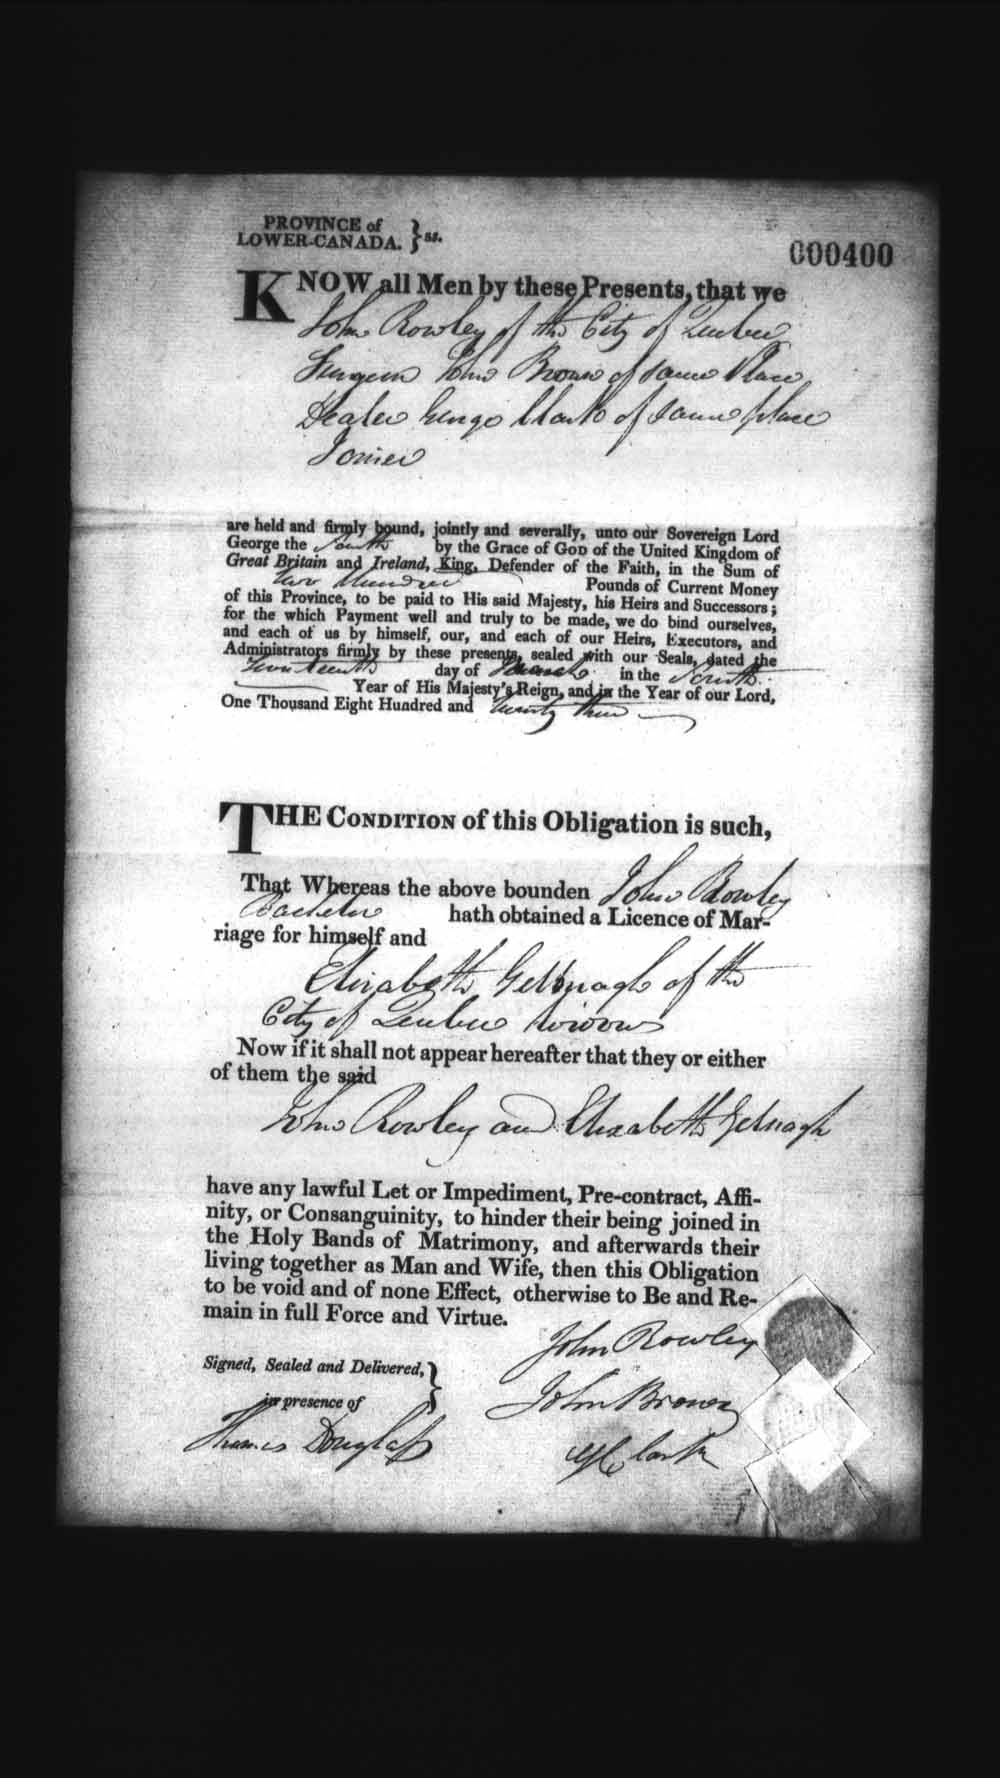 PROVINCE of
LOWER-CANADA. } ss.
000400
KNOW all Men by these Presents, that we
John Rowley of the City of Quebec
Surgeon John Brown of same Place
Dealer George Clark of same place
Joiner
are held and firmly bound, jointly and severally, unto our Sovereign Lord
George the Fourth by the Grace of GOD of the United Kingdom of
Great Britain and Ireland, King, Defender of the Faith, in the Sum of
Two Hundred Pounds of Current Money
of this Province, to be paid to His said Majesty, his Heirs and Successors;
for the which Payment well and truly to be made, we do bind ourselves,
and each of us by himself, our, and each of our Heirs, Executors, and
Administrators firmly by these presents, sealed with our Seals, dated the
day of March in the Fourth
Year of His Majesty's Reign, and in the Year of our Lord,
One Thousand Eight Hundred and Twenty three
THE CONDITION of this Obligation is such,
That Whereas the above bounden John Rowley
Bachelor hath obtained a Licence of Mar-
riage for himself and
Elizabeth of the
City of Quebec Widow
Now if it shall not appear hereafter that they or either
of them the said
John Rowley and Elizabeth
have any lawful Let or Impediment, Pre-contract, Affi-
nity, or Consanguinity, to hinder their being joined in
the Holy Bands of Matrimony, and afterwards their
living together as Man and Wife, then this Obligation
to be void and of none Effect, otherwise to Be and Re-
main in full Force and Virtue.
John Rowley
Signed, Sealed and Delivered, }
in presence of
John Brown
Thomas Douglass
G Clark